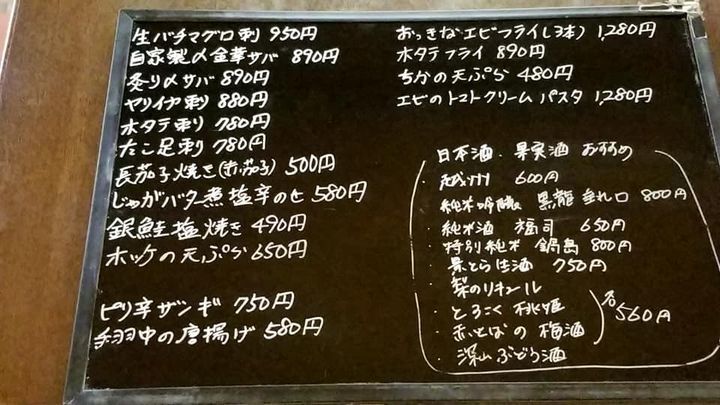 生バチマグロ刺 950円
自家製〆金華サバ 890円
炙り〆サバ 890円
ヤリイカ刺 880円
ホタテ刺 780円
たこ足刺 780円
長茄子焼き(赤茄子) 500円
じゃがバター煮塩辛のせ 580円
銀鮭塩焼き 490円
ホッケの天ぷら 650円
ピリ辛ザンギ 750円
手羽中の唐揚げ 580円
おっきなエビフライ(3本) 1,280円
ホタテフライ 890円
ちかの天ぷら 480円
エビのトマトクリームパスタ 1,280円
日本酒・果実酒 おすすめ
・越州 600円
・純米吟醸 黒龍 垂れ口 800円
・純米酒 福司 650円
・特別純米 鍋島 800円
・景とら生酒 750円
・梨のリキュール
・とろこく 桃姫
・赤いとばの 梅酒
・深山ぶどう酒
各560円